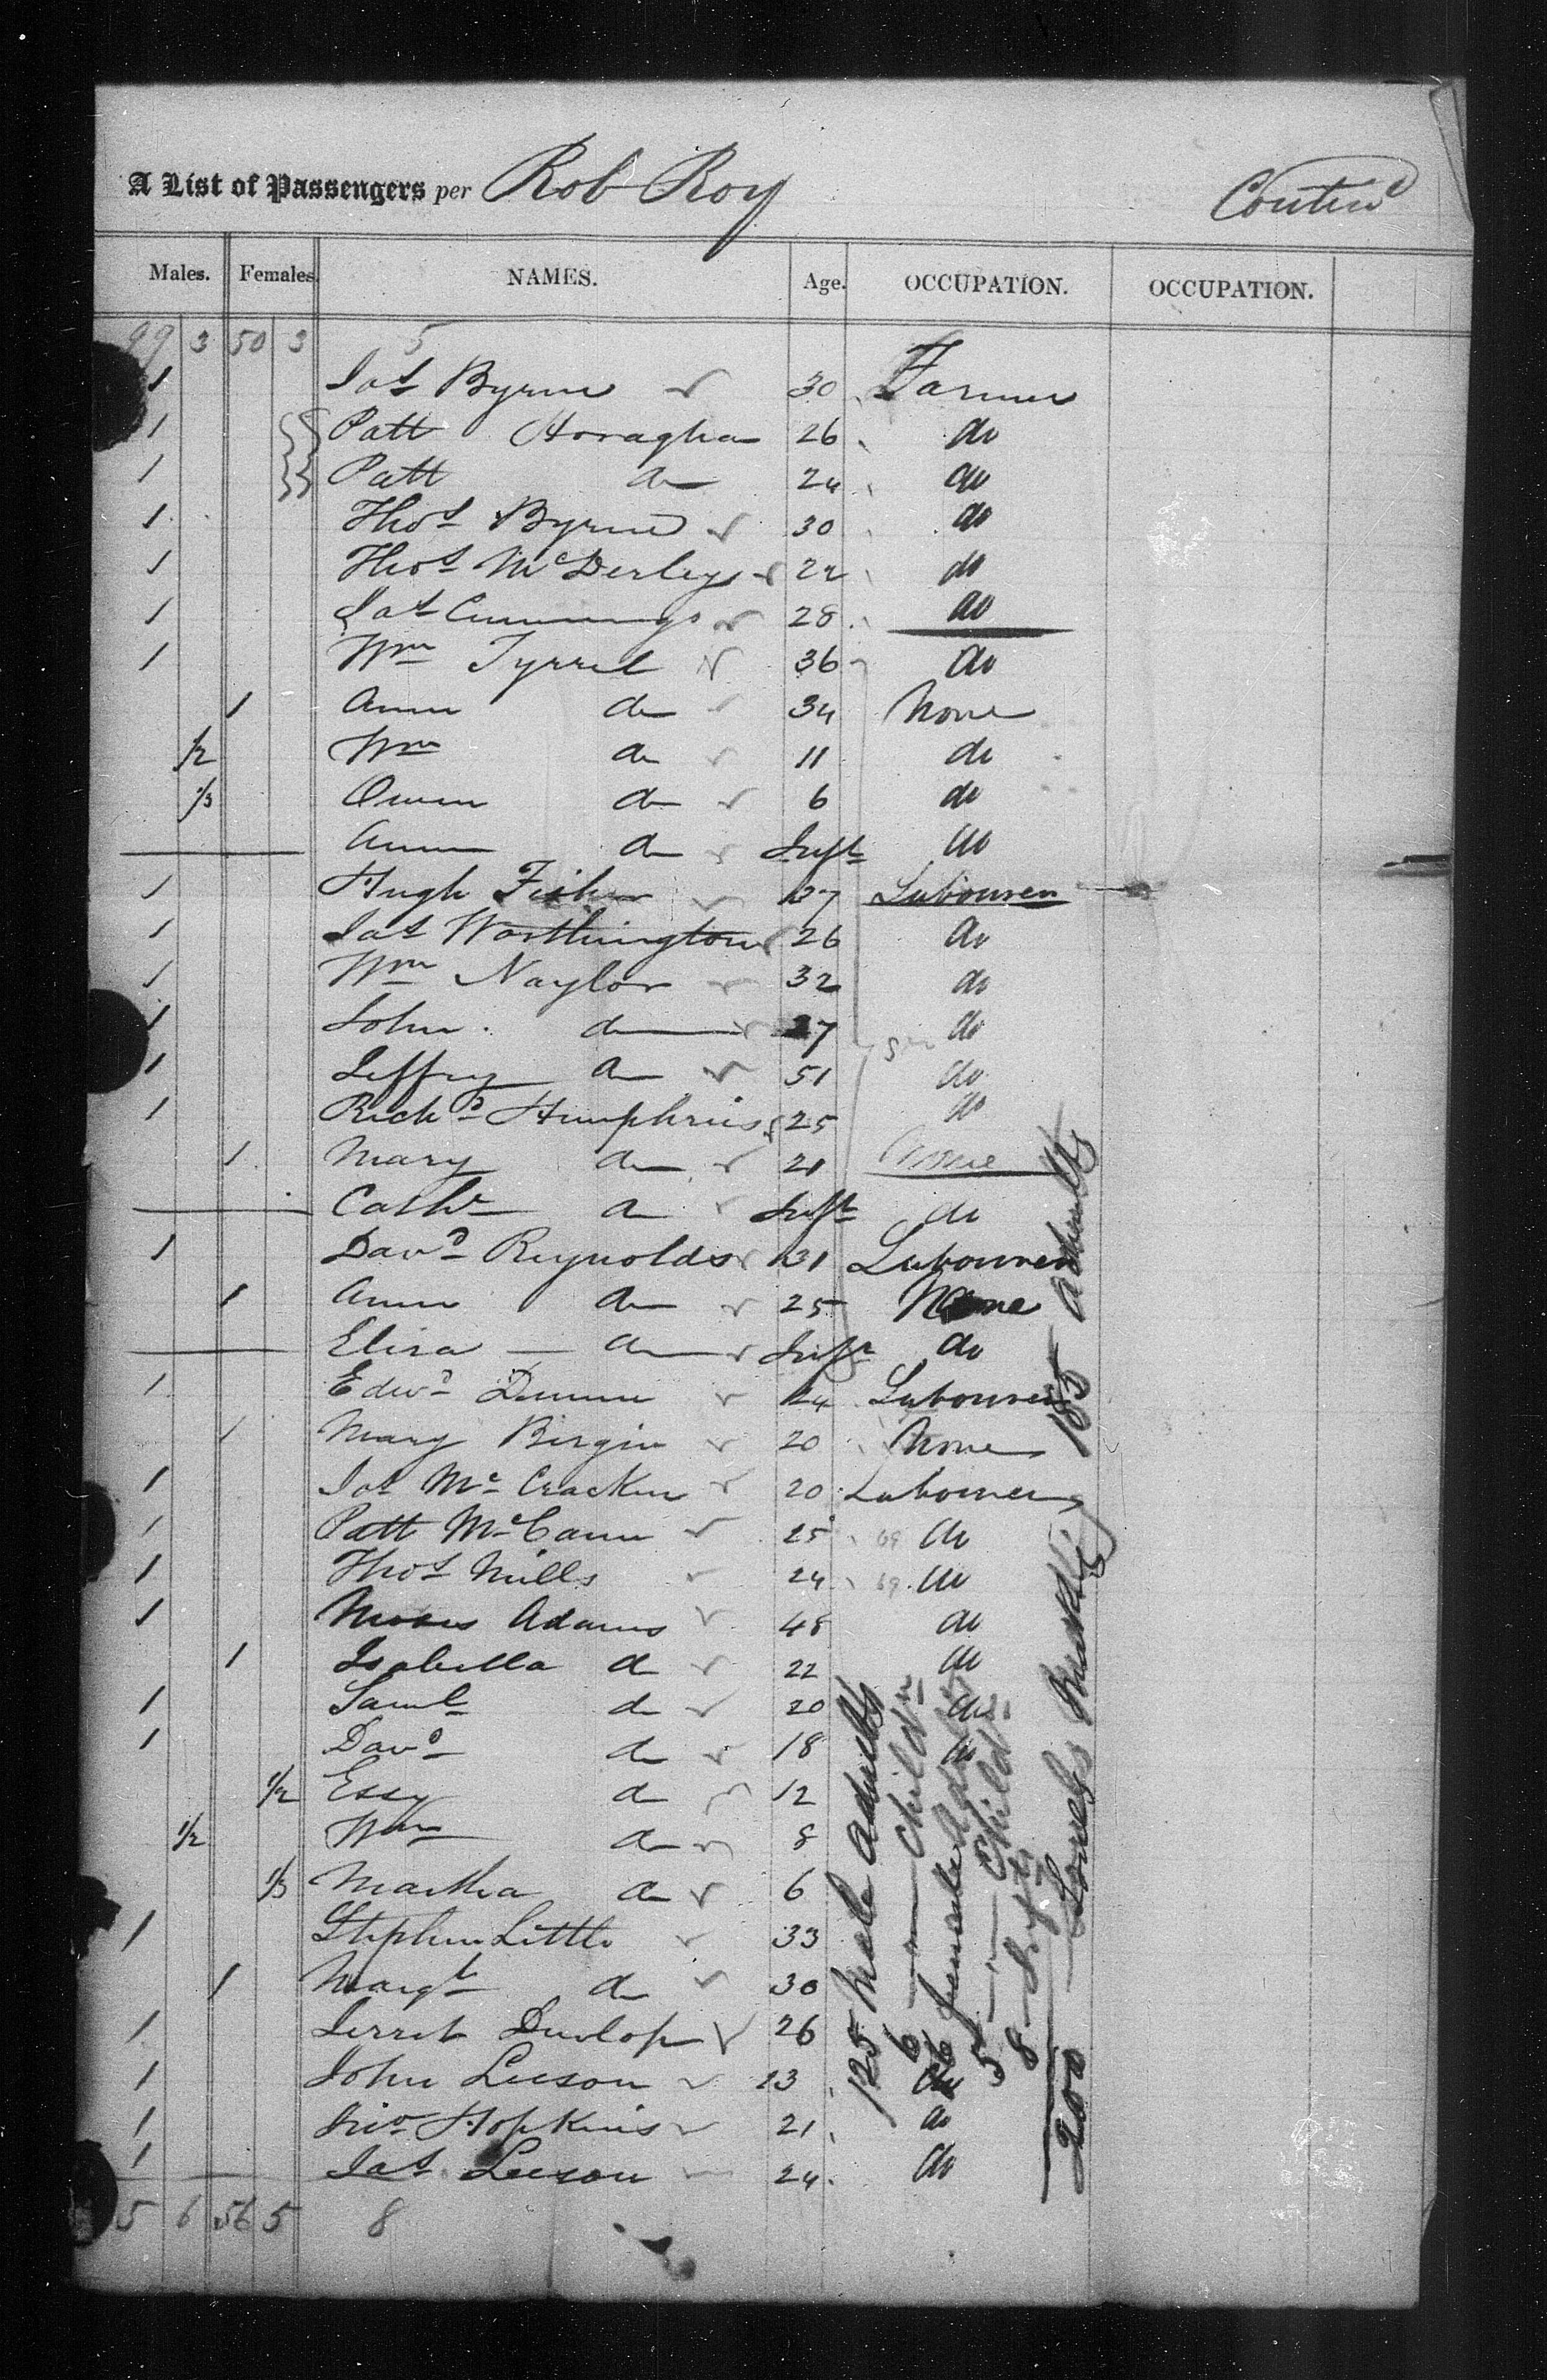 A List of Passengers per Rob Roy Contind
Males. Females. NAMES. Age. OCCUPATION. OCCUPATION.
99 3 50 3 5
1 Jas Byrne 30 Farmer
1 Patt Horaghan 26 do
1 Patt do 24 do
1 Thos Byrne 30 do
1 Thos McDerleys 22 do
1 Jas Cummings 28 do
1 Wm Tyrrel 36 do
1 Anne do 34 None
1/2 Wm do 11 do
1/3 Owen do 6 do
Anne do Inft do
1 Hugh Fisher 37 Labourer
1 Jas Worthington 26 do
1 Wm Naylor 32 do
1 John do 27 do
1 Jeffrey do 51 do
1 Richd Humphries 25 do
1 Mary do 21 None
Cathe do Inft do
1 Davd Reynolds 31 Labourer
1 Anne do 25 None
Eliza do Inft do
1 Edwd Dunne 24 Labourer
1 Mary Birgin 20 None
1 Jas McCracken 20 Labourer
1 Patt McCann 25 do
1 Thos Mills 24 do
1 Moses Adams 48 do
1 Isabella do 22 do
1 Saml do 20 do
1 Davd do 18 do
1/2 Essy do 12
1/2 Wm do 8
1/3 Martha do 6
1 Stephen Little 33
1 Margt do 30
1 Jerret Dunlop 26
1 John Leeson 23 do
1 Jno Hopkins 21 do
1 Jas Leeson 24 do
5 6 56 5 8
125 Male Adults
6 — Childn
56 female Adults
5 — Childn
8 — Infts
200 Souls 185 Adults